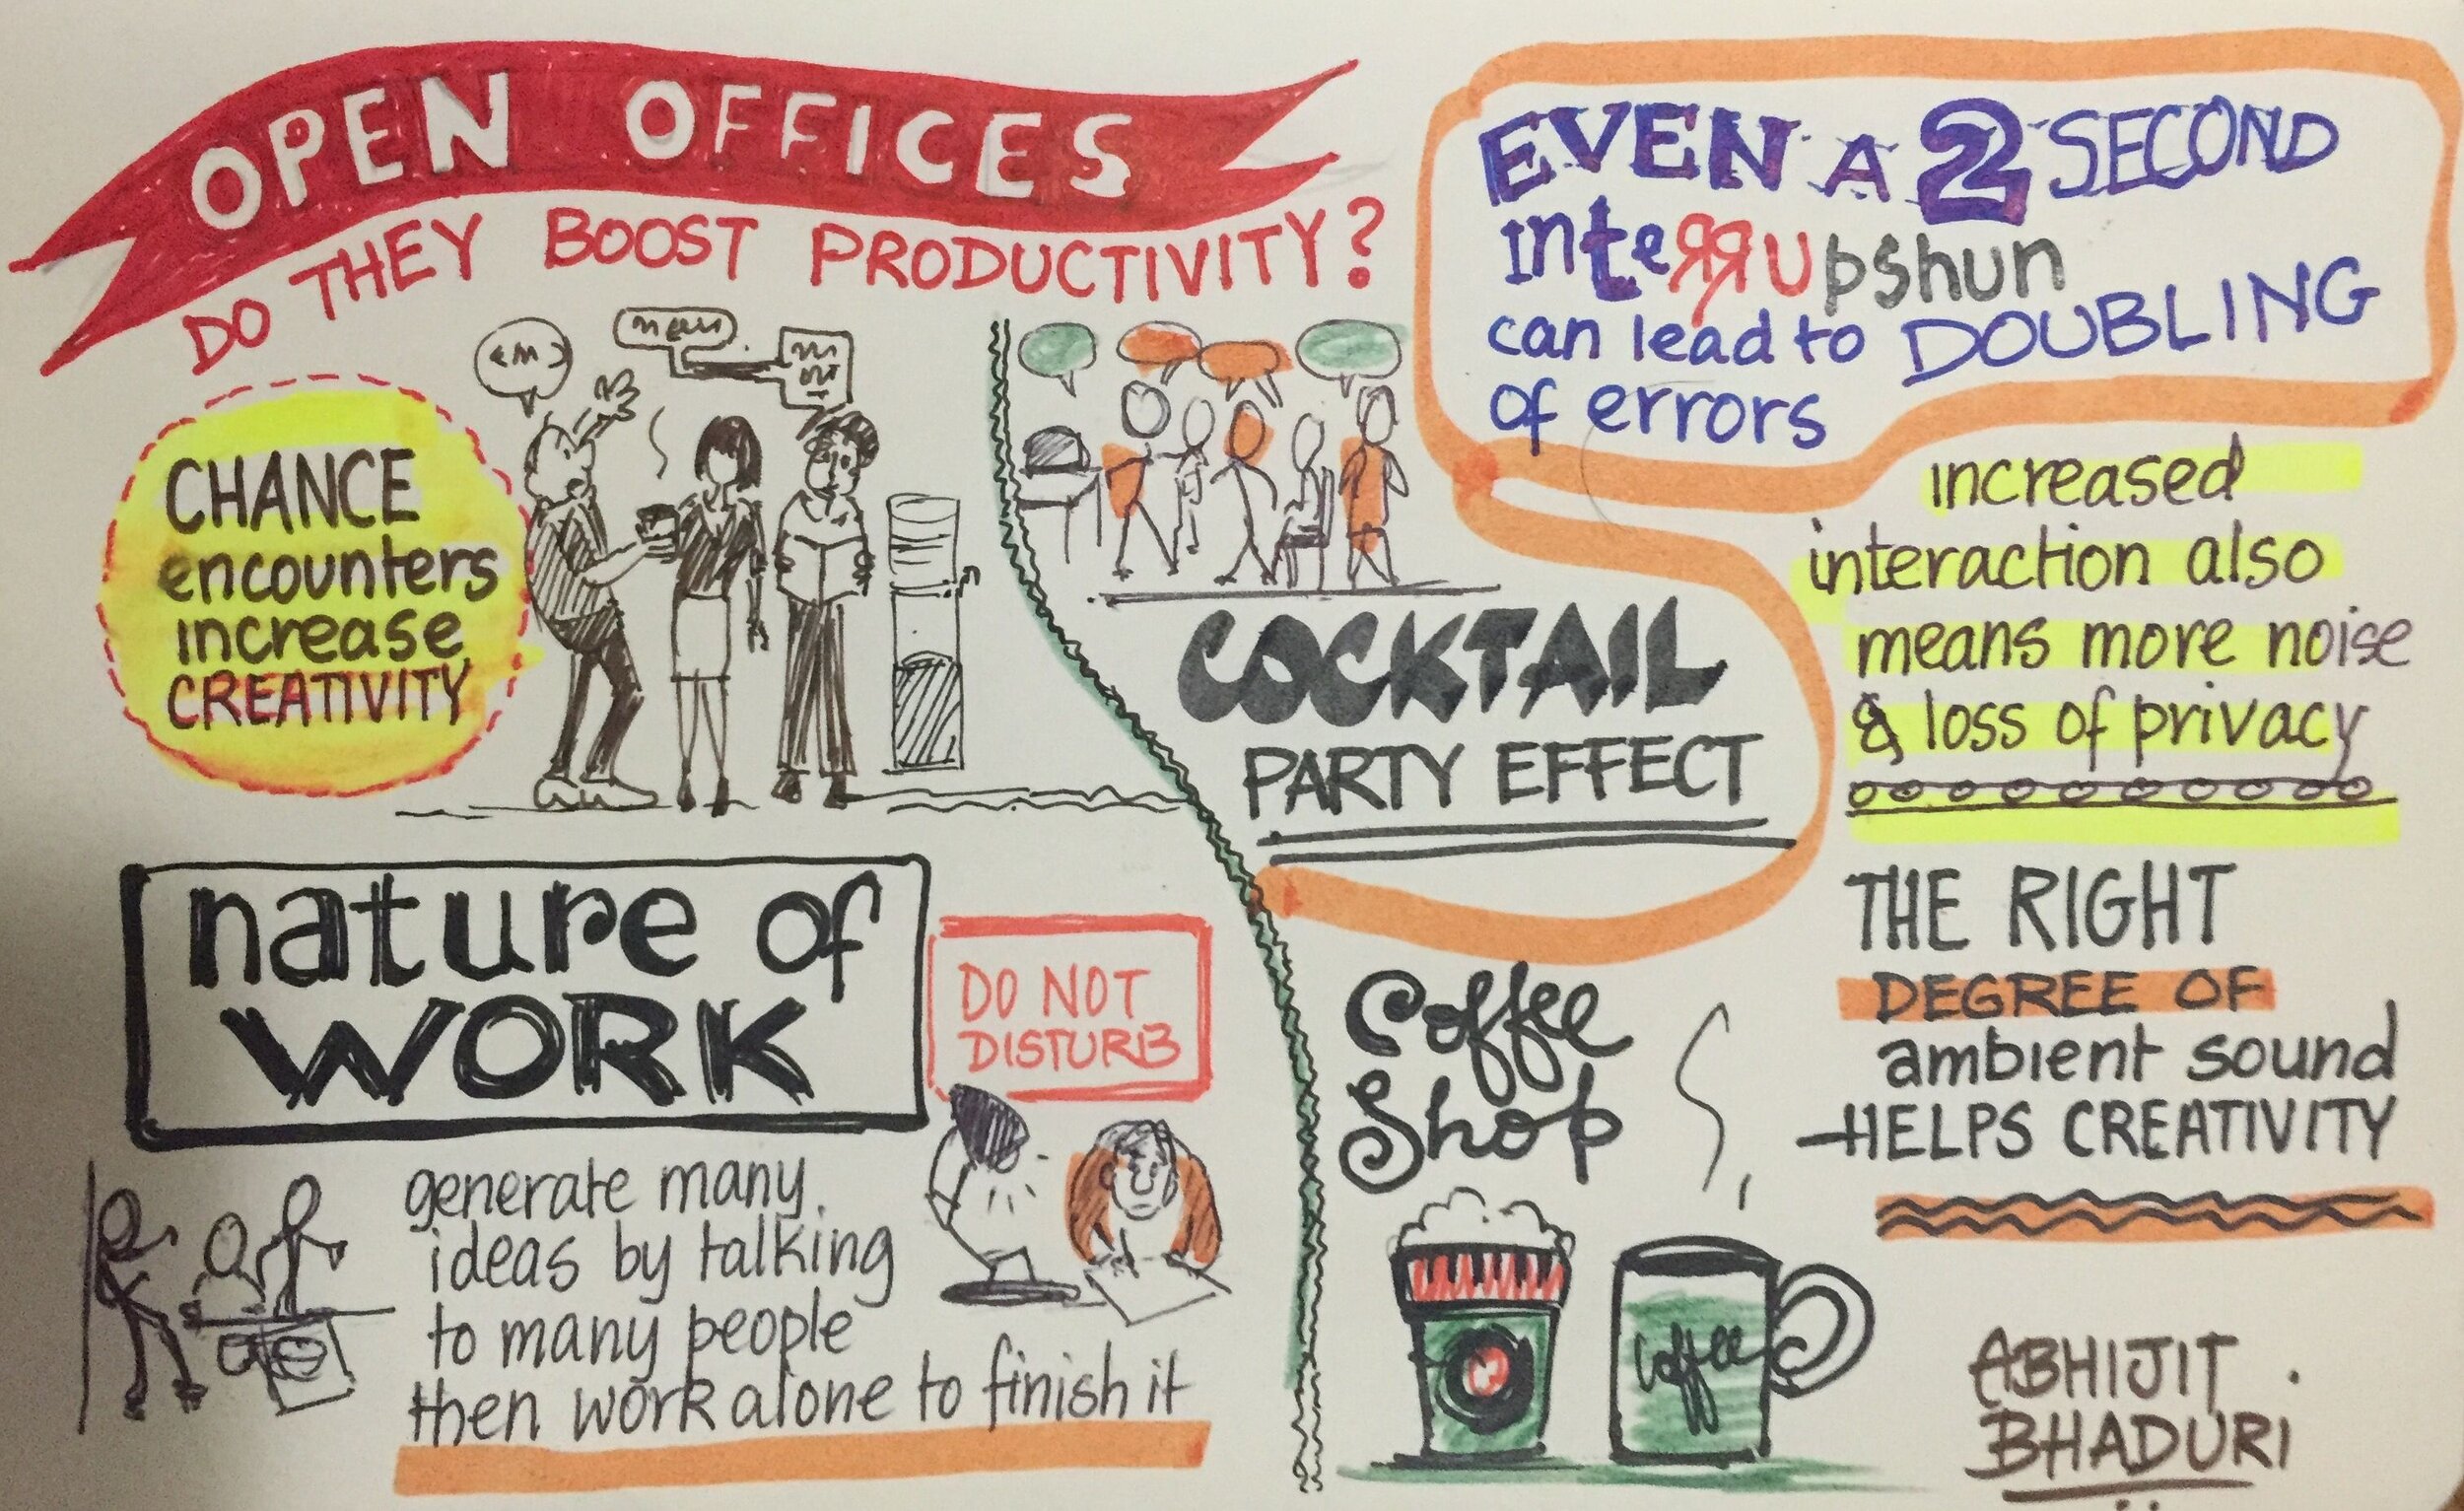 OPEN OFFICES
DO THEY BOOST PRODUCTIVITY?
CHANCE
encounters
increase
CREATIVITY
EVEN A 2 SECOND
interrupshun
can lead to DOUBLING
of errors
COCKTAIL
PARTY EFFECT
increased
interaction also
means more noise
& loss of privacy
nature of
WORK
DO NOT
DISTURB
generate many
ideas by talking
to many people
then work alone to finish it
Coffee
Shop
coffee
THE RIGHT
DEGREE OF
ambient sound
HELPS CREATIVITY
ABHIJIT
BHADURI